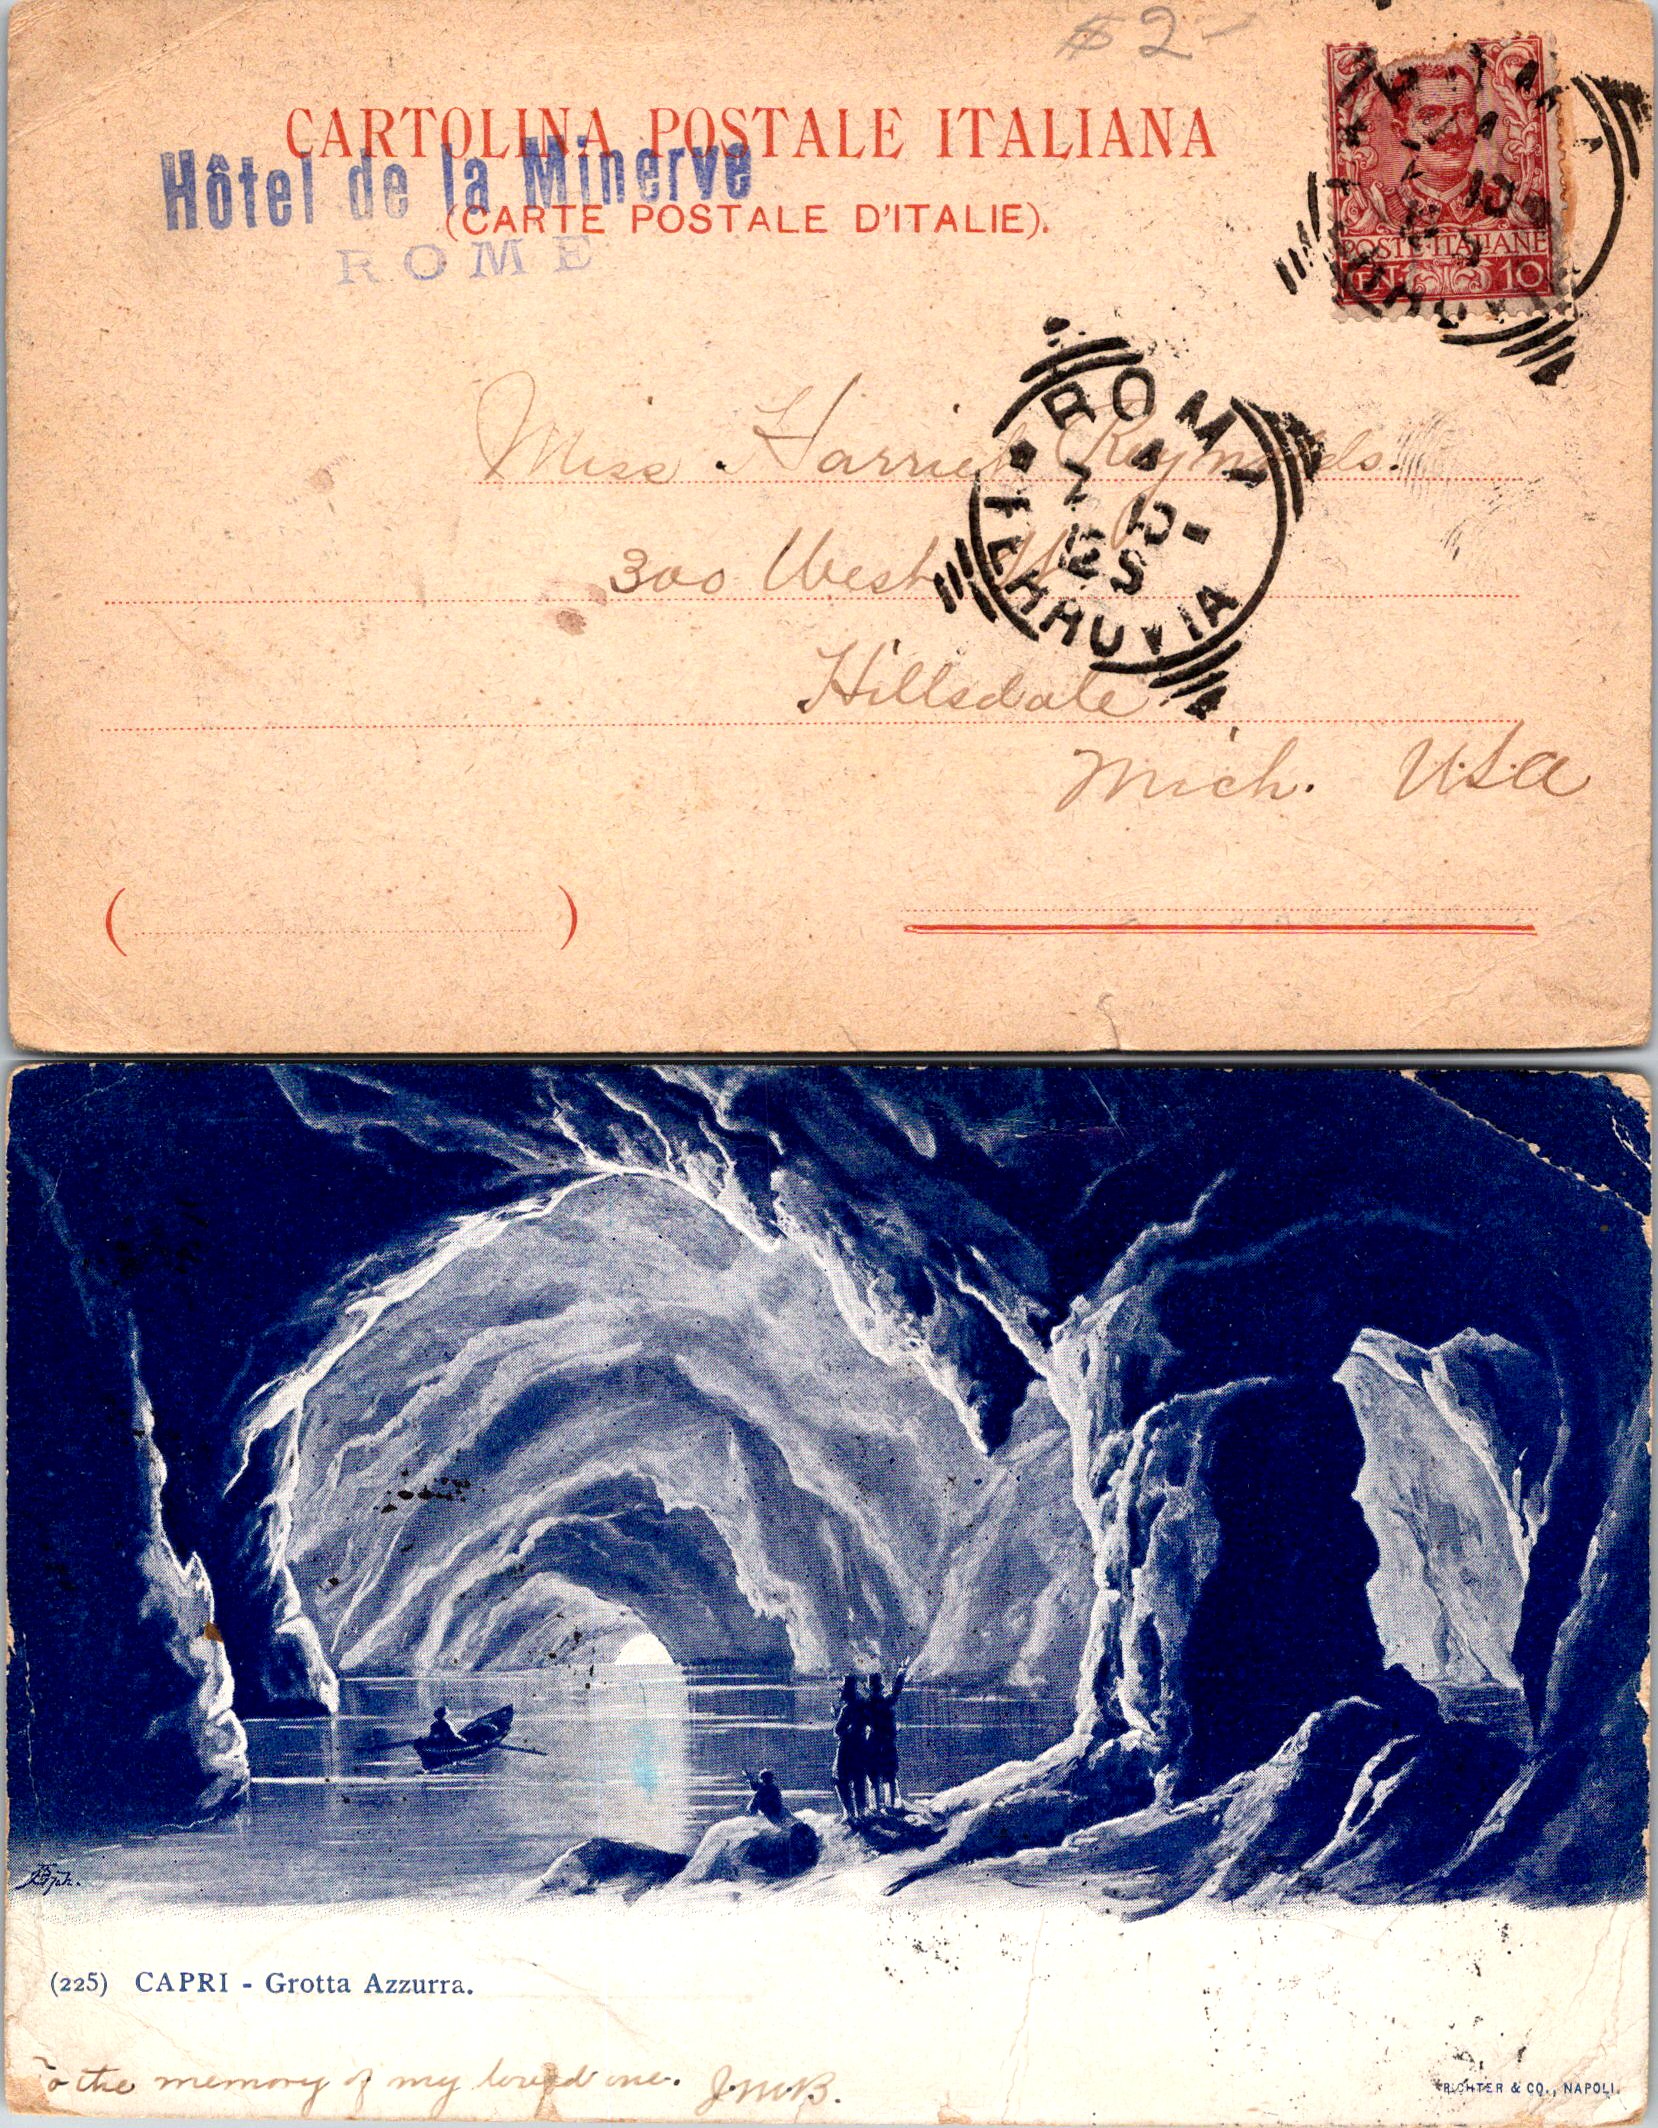 $2-
CARTOLINA POSTALE ITALIANA
Hôtel de la Minerve
(CARTE POSTALE D'ITALIE).
ROME
POSTE ITALIANE
CENT. 10
ROMA
FERROVIA
Miss Harriet Reynolds.
300 West
Hillsdale
Mich. U.S.A
( )
(225) CAPRI - Grotta Azzurra.
To the memory of my loved one. J.M.B.
RICHTER & CO., NAPOLI.